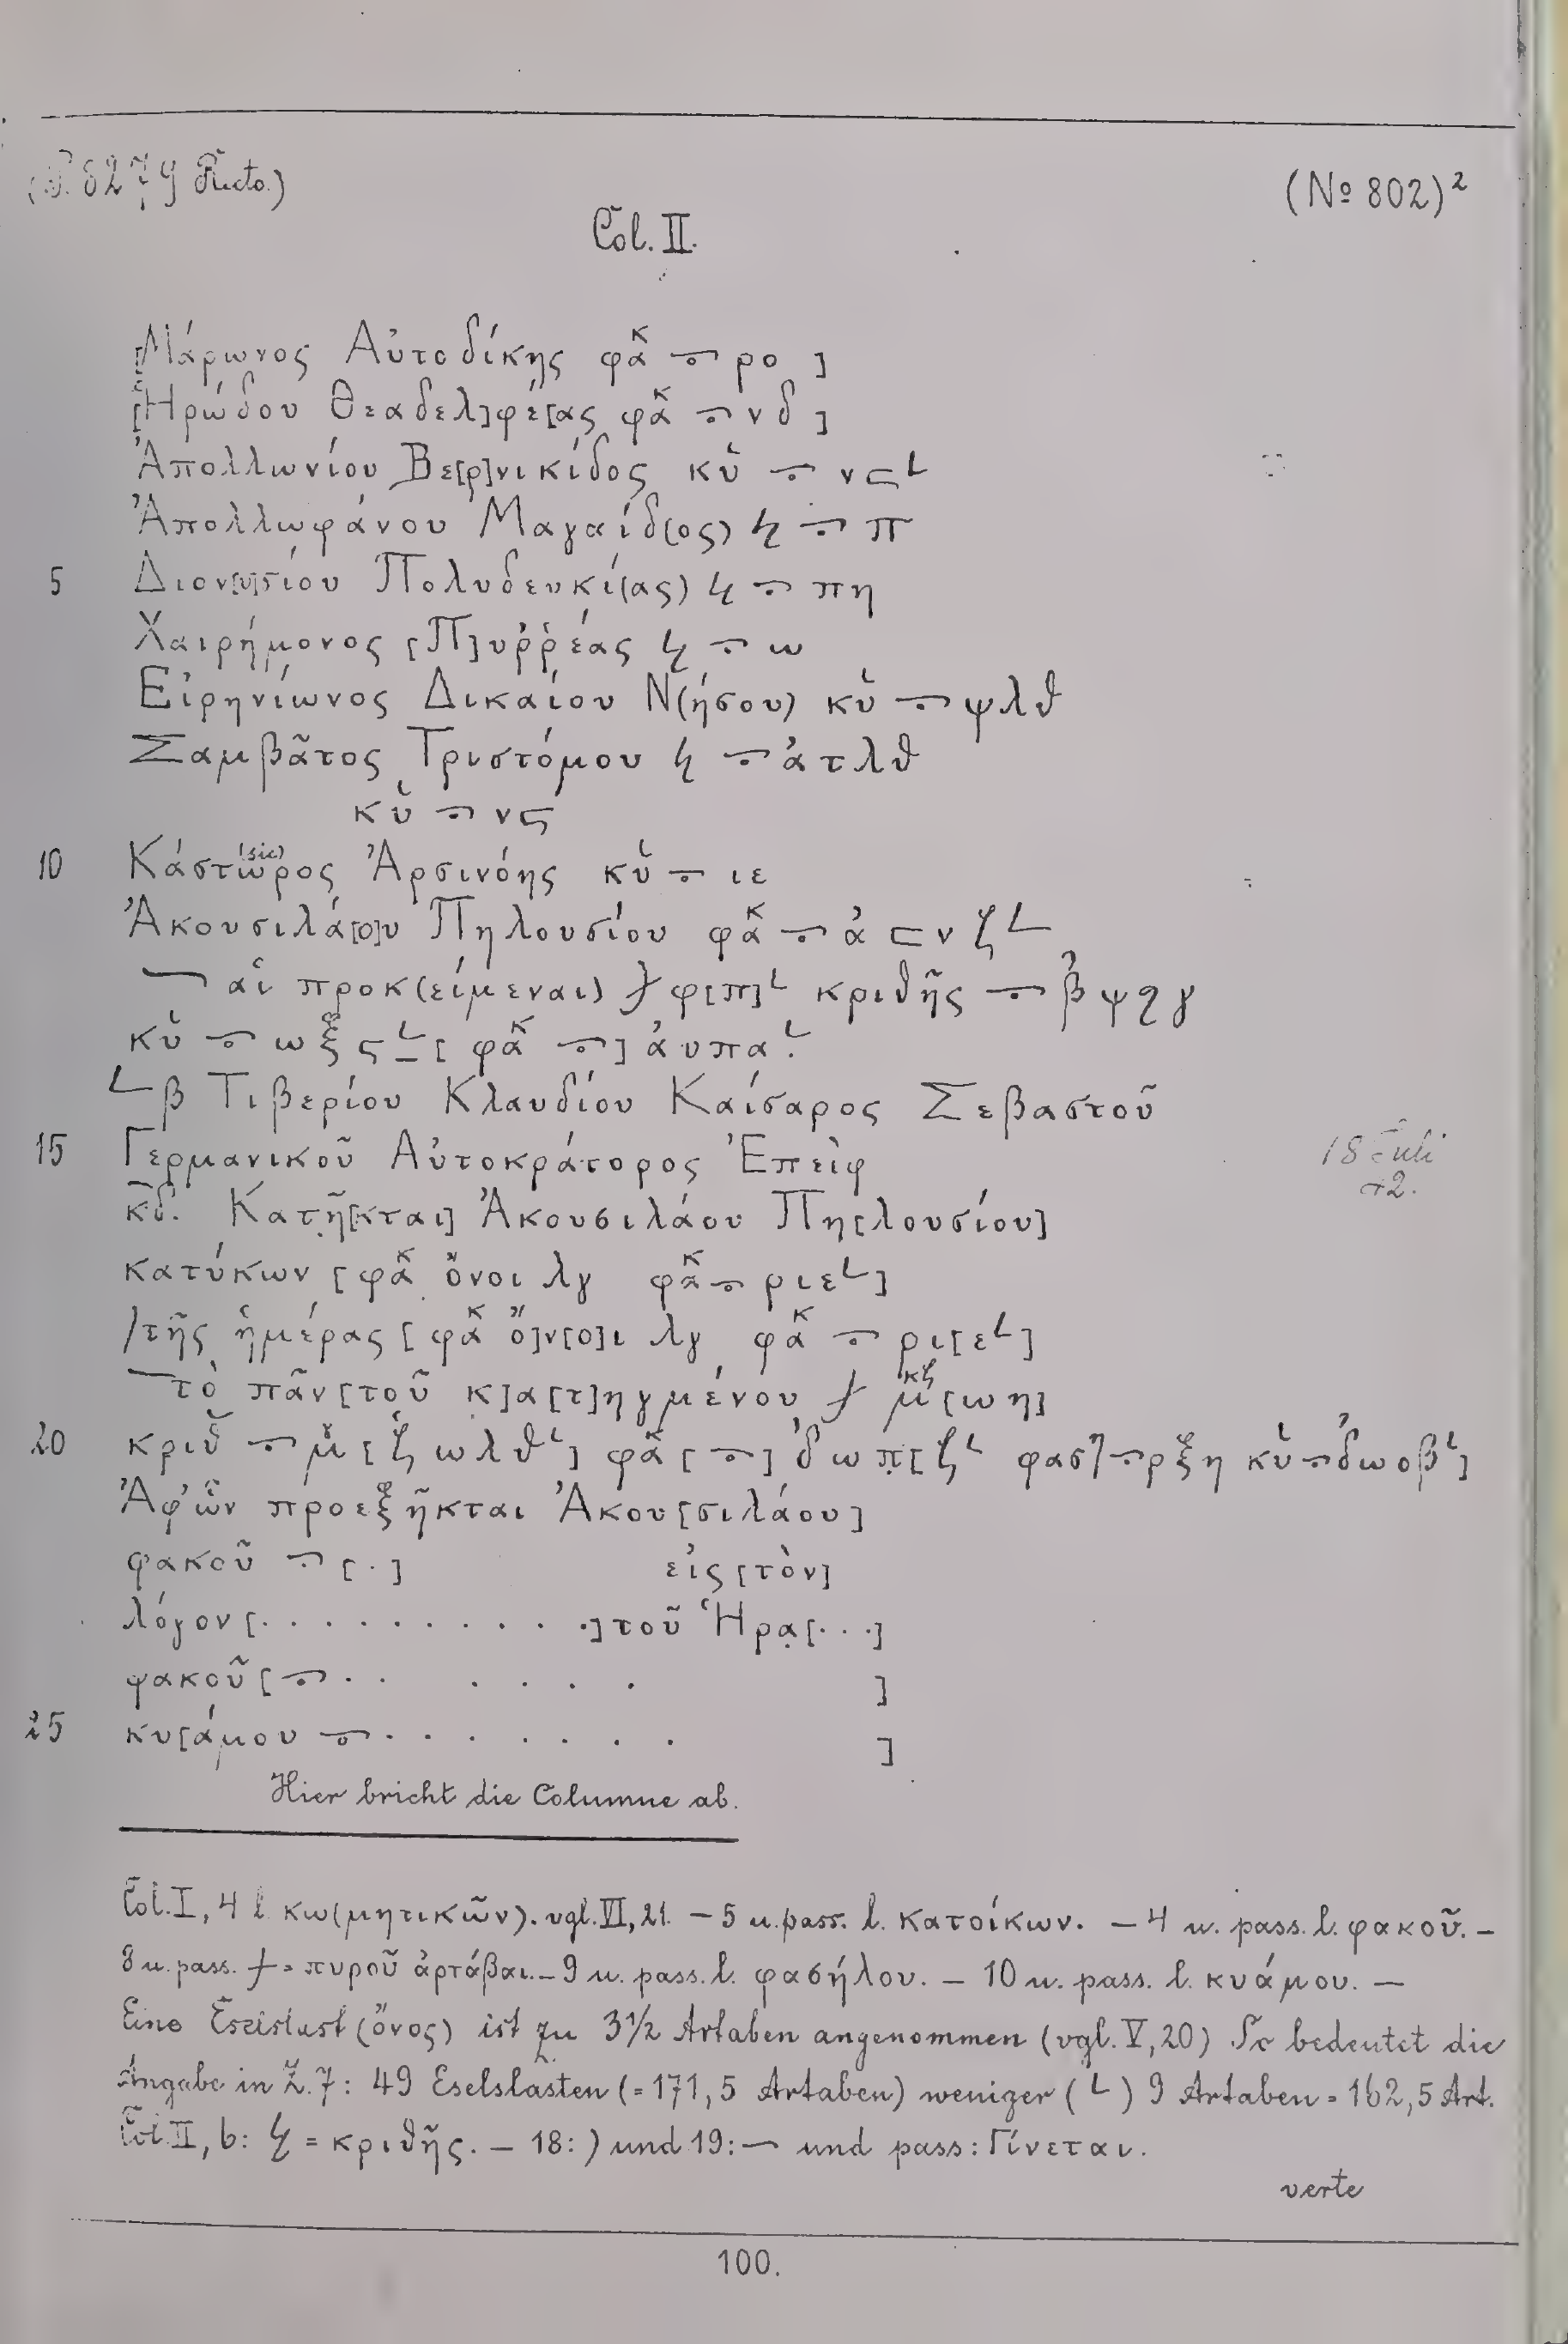 (P. 6279 Recto.) (№ 802)²
Col. II.
[Μάρωνος Αὐτοδίκης φα̃κ ⨪ ρο ]
[Ἡρώδου Θεαδελ]φέ[ας φα̃κ ⨪ νδ ]
Ἀπολλωνίου Βε[ρ]νικίδος κυ̉ ⨪ νϛ𐅵
Ἀπολλωφάνου Μαγαίδ(ος) ϟ ⨪ π
5 Διον[υ]σίου Πολυδευκί(ας) ϟ ⨪ πη
Χαιρήμονος [Π]υῤῥέας ϟ ⨪ ω
Εἰρηνίωνος Δικαίου Ν(ήσου) κυ̉ ⨪ ψλθ
Σαμβᾶτος Τριστόμου ϟ ⨪ ἀτλθ
κυ̉ ⨪ νϛ
10 Κάστω(sic)ρος Ἀρσινόης κυ̉ ⨪ ιε
Ἀκουσιλά[ο]υ Πηλουσίου φα̃κ ⨪ ἀ ⊏ νζ 𐅵
αἱ προκ(είμεναι) φ[π]𐅵 κριθῆς ⨪ β̓ψϙγ
κυ̉ ⨪ ωξϛ𐅵[ φα̃κ ⨪] ἀυπα𐅵
𐅹β Τιβερίου Κλαυδίου Καίσαρος Σεβαστοῦ
15 Γερμανικοῦ Αὐτοκράτορος Ἐπεὶφ
κ̅δ̅. Κατῆ[κται] Ἀκουσιλάου Πη[λουσίου]
κατύκων [φα̃κ ὄνοι λγ φα̃κ ⨪ ριε𐅵]
/τῆς ἡμέρας [φα̃κ ὄ]ν[ο]ι λγ φα̃κ ⨪ ρι[ε𐅵]
τὸ πᾶν [τοῦ κ]α[τ]ηγμένου μ̓κζ [ωη]
20 κριθ̃ ⨪ μ̓ [ζ̓ωλθ𐅵] φα̃ [⨪] δ̓ωπ[ζ𐅵 φασῆ ⨪ ρξη κυ̉ ⨪ δ̓ωοβ𐅵]
Ἀφ' ὧν προεξῆκται Ἀκου[σιλάου]
φακοῦ ⨪ [·] εἰς [τὸν]
λόγον [· · · · · · · · · ·] τοῦ Ἡρα[· · ·]
φακοῦ [⨪ · · · · · · ]
25 κυ[άμου ⨪ · · · · · · · ]
Hier bricht die Columne ab.
Col. I, 4 l. κω(μητικῶν). vgl. VI, 21. – 5 u. pass. l. κατοίκων. – 4 u. pass. l. φακοῦ. –
8 u. pass. = πυροῦ ἀρτάβαι. – 9 u. pass. l. φασήλου. – 10 u. pass. l. κυάμου. –
Eine Eselslast (ὄνος) ist zu 3½ Artaben angenommen (vgl. V, 20) So bedeutet die
Angabe in Z. 7: 49 Eselslasten (= 171,5 Artaben) weniger (L) 9 Artaben = 162,5 Art.
Col. II, 6: ϟ = κριθῆς. – 18: ) und 19: ⁓ und pass: Γίνεται.
verte
100.